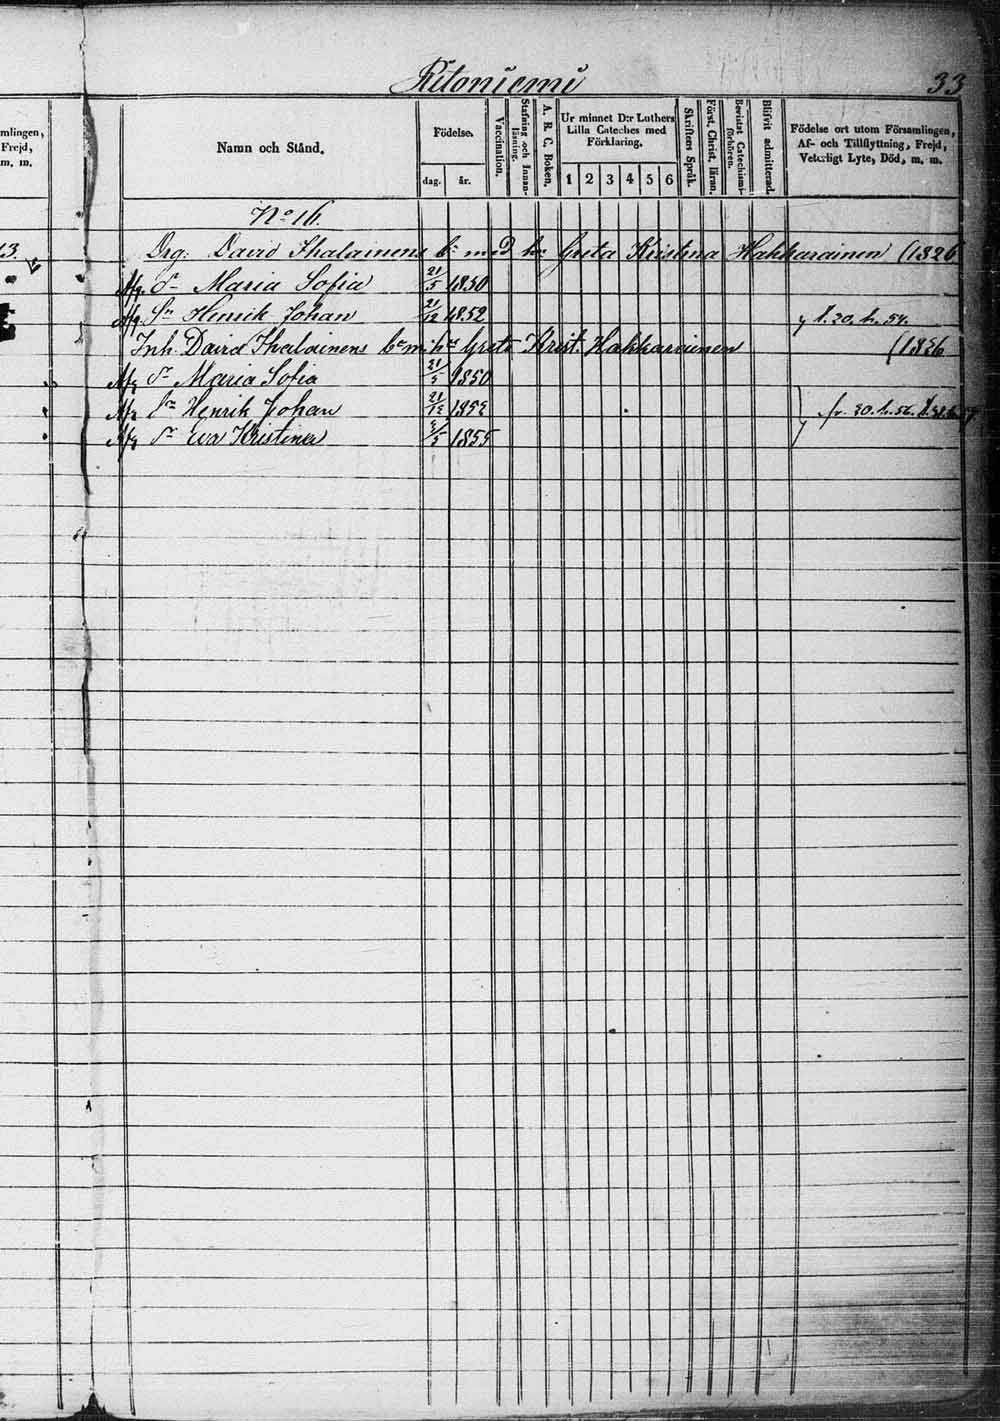 Ritoniemi 33
mlingen,
Frejd,
m. m.
Namn och Stånd.
Födelse.
dag. år.
Vaccination.
Stafning och Innanläsning.
A. B. C. Boken.
Ur minnet D:r Luthers
Lilla Cateches med
Förklaring.
1 2 3 4 5 6
Skriftens Språk.
Först. Christ. läran.
Bevistat Catechismiförhören.
Blifvit admitterad.
Födelse ort utom Församlingen,
Af- och Tillflyttning, Frejd,
Veterligt Lyte, Död, m. m.
No 16.
13.
Drg: David Ihalainens bn med hu Greta Kristina Hakkarainen (1826
Dr Maria Sofia 21/5 1850
Sn Henrik Johan 21/12 1852 t. 20. h. 54.
Inh. David Ihalainens bn m. hu Greta Krist. Hakkarainen (1826
Dr Maria Sofia 21/5 1850
Sn Henrik Johan 21/12 1852 fr. 30. h. 56.
Dr Eva Kristina 3/5 1855